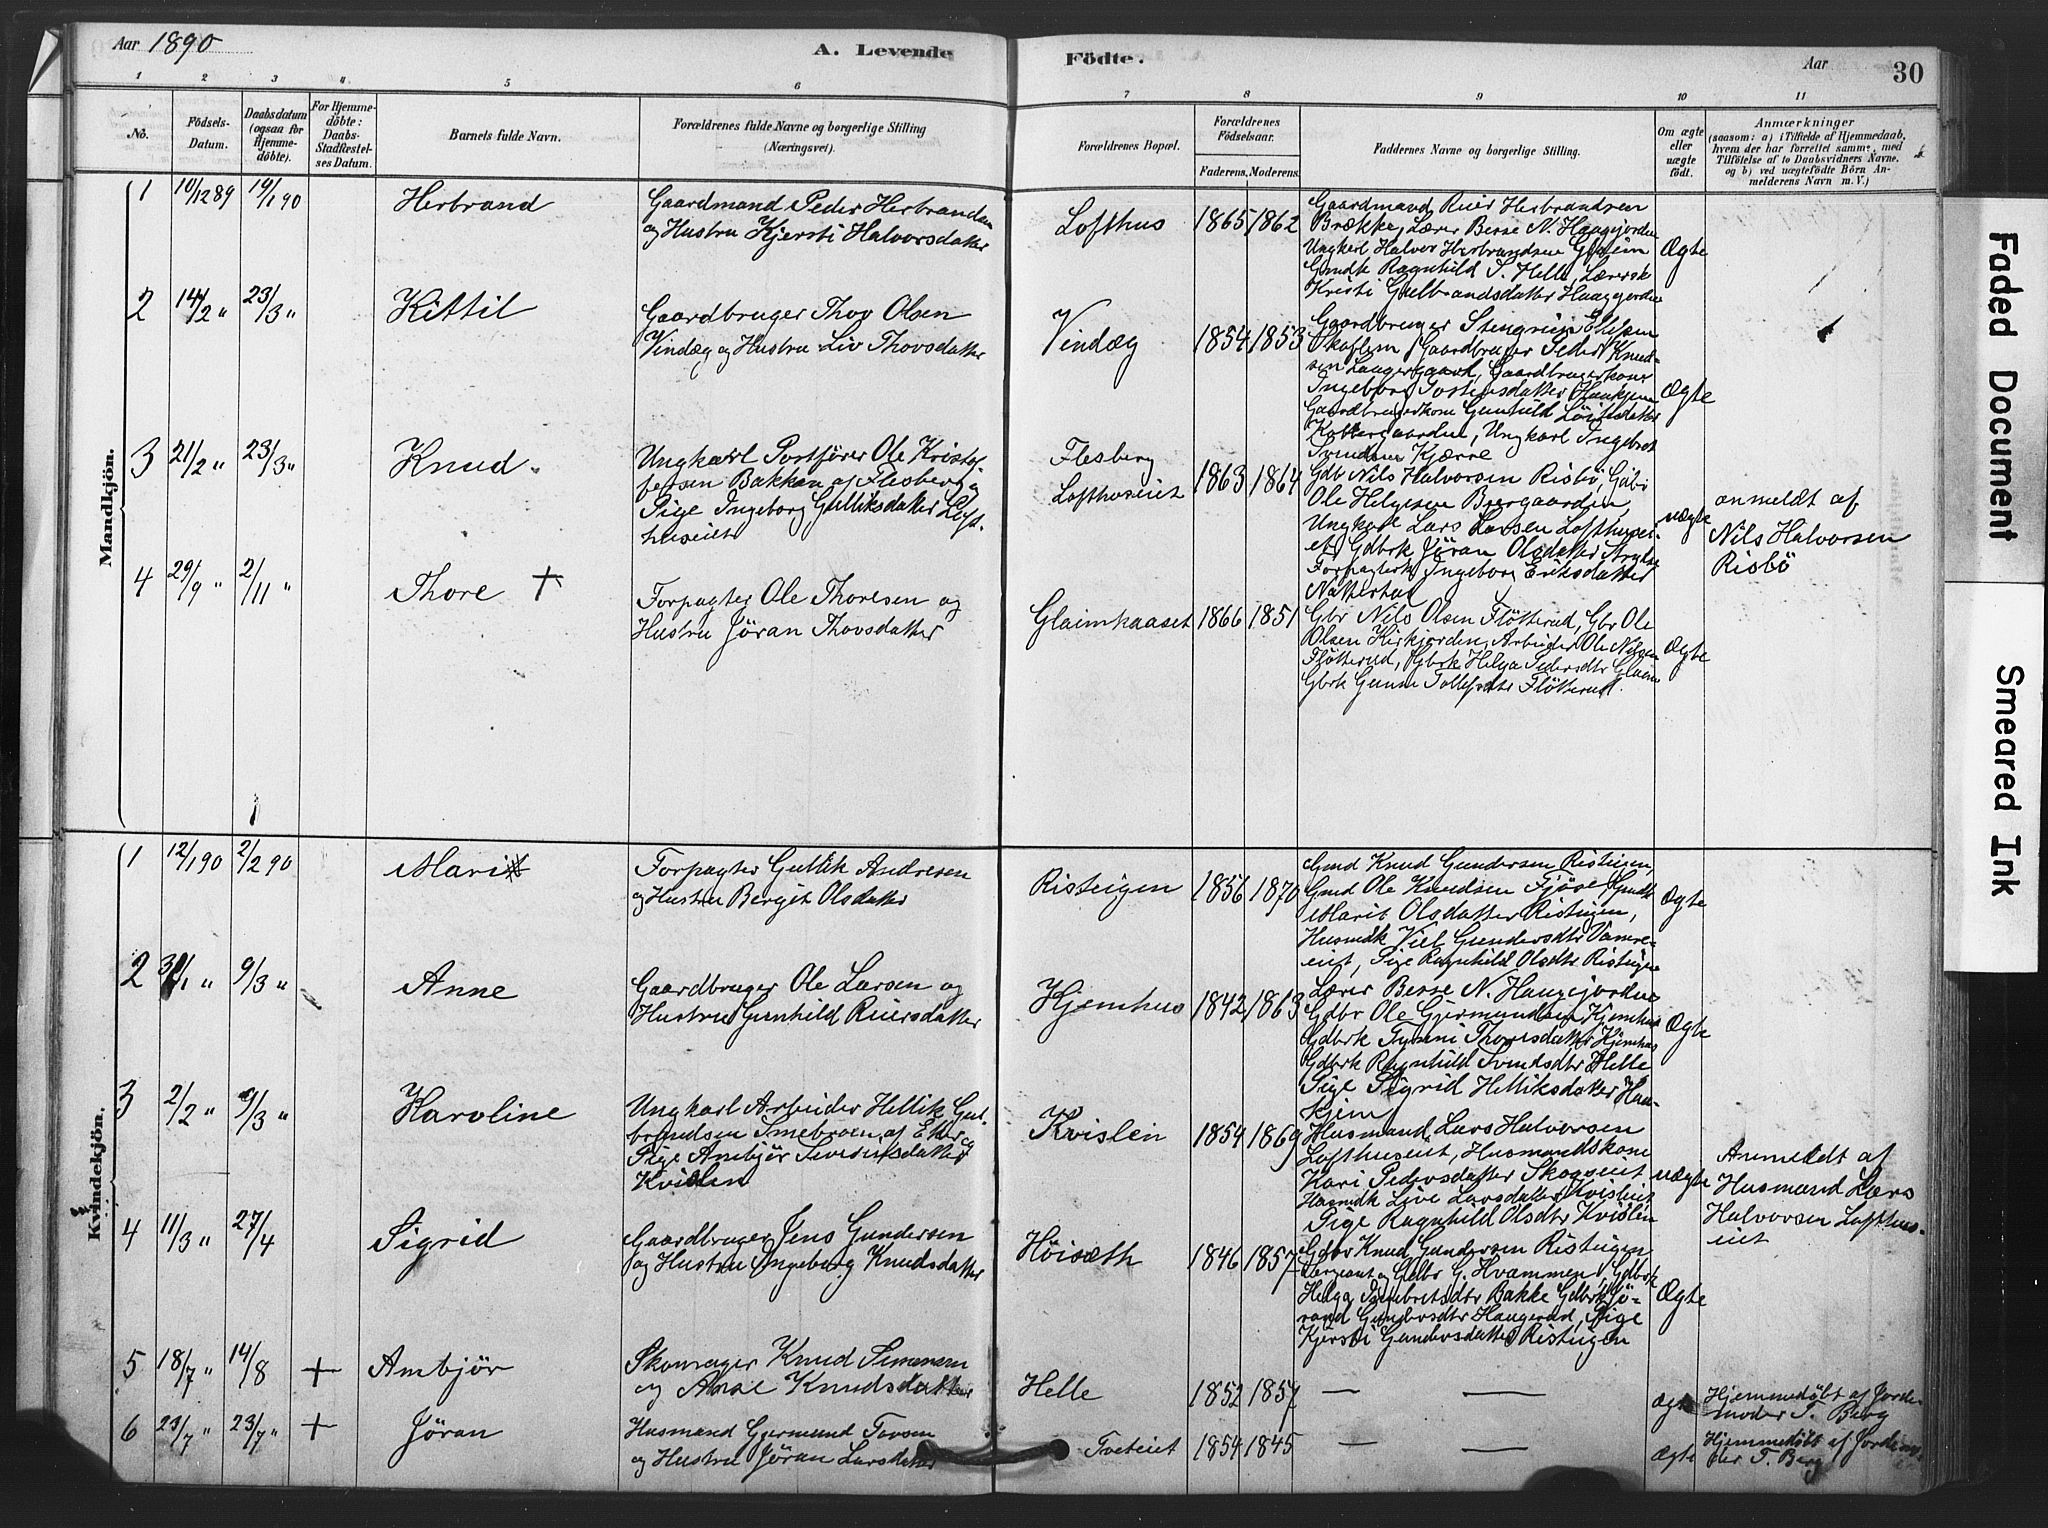 Aar 1890
A. Levende
Födte.
Aar
30
1
2
3
4
5
6
7
8
9
10
11
No.
Födsels-
Datum.
Daabsdatum
(ogsaa for
Hjemme-
döbte).
For Hjemme-
döbte:
Daabs-
Stadfæstel-
ses Datum.
Barnets fulde Navn.
Forældrenes fulde Navne og borgerlige Stilling
(Næringsvei).
Forældrenes Bopæl.
Forældrenes
Födselsaar.
Faderens. Moderens.
Faddernes Navne og borgerlige Stilling.
Om ægte
eller
uægte
födt.
Anmærkninger
(saasom: a) i Tilfælde af Hjemmedaab,
hvem der har forrettet samme, med
Tilföielse af to Daabsvidners Navne,
og b) ved uægtefödte Börn An-
melderens Navn m. V.)
Mandkjön.
1
10/12 89
19/1 90
Herbrand
Gaardmand Peder Herbrandsen
og Hustru Kjersti Halvorsdatter
Lofthus
1865
1862
Gaardmand Reier Herbrandsen
Brække, Lærer Berse N. Haugjorden
Ungkarl Halvor Herbrandsen Glaim
Gmdk Ragnhild S. Helle, Lærersk
Kristi Gulbrandsdatter Haugjorden
Ægte
2
14/2 "
23/3 "
Kittil
Gaardbruger Thov Olsen
Vindæg og Hustru Liv Thovsdatter
Vindæg
1854
1853
Gaardbruger Stengrim Ellefsen
Skaflem, Gaardbruger Peder Knud-
sen Laagergaard, Gaardbrugerkone
Ingeborg Tostensdatter
Gaardbrugerkone Gunhild
Ungkarl Ingebret
Svendsen Kjærre
Ægte
3
21/2 "
23/3 "
Knud
Ungkarl Postfører Ole Kristof-
fersen Bakken af Flesberg og
Pige Ingeborg Gulliksdatter Loft-
huseiet
Flesberg
Lofthuseiet
1863
1864
Gdb Nils Halvorsen Risbö, Gdbr
Ole Helgesen Bergaarden,
Ungkarl Lars Larsen Lofthusei-
et, Gdbrk Jöran Olsdatter
Forpagterk Ingeborg Eriksdatter
uægte
anmeldt af
Nils Halvorsen
Risbö
4
29/9 "
2/11 "
Thore +
Forpagter Ole Thoresen og
Hustru Jöran Thovsdatter
Glaimhaaset
1866
1851
Gbr Nils Olsen Flötterud, Gbr Ole
Olsen Kirkjorden, Arbeider Ole Nilsen
Flötterud, Gbrk Helga Pedersdtr Glaim
Gbrk Gunne Tollefsdtr Flötterud.
Ægte
Kvindekjön.
1
12/1 90
2/2 90
Mari
Forpagter Gullik Andresen
og Hustru Bergit Olsdatter
Risteigen
1856
1870
Gmd Knud Gundersen Risteigen,
Gmd Ole Knudsen Fjöse, Gmdk
Marit Olsdatter Risteigen,
Husmdk Viel Gundersdtr Vamre-
eiet, Pige Ragnhild Olsdtr Risteigen
Ægte
2
9/3 "
Anne
Gaardbruger Ole Larsen og
Hustru Gunhild Reiersdatter
Kjemhus
1842
1863
Lærer Berse N. Haugjorden
Gdbr Ole Gjermundsen Kjemhus
Gdbrk Tynni Thoresdatter Kjemhus
Gdbrk Ragnhild Svendsdtr Helle
Pige Sigrid Helliksdatter Haa-
kjem
Ægte
3
2/2 "
9/3 "
Karoline
Ungkarl Arbeider Hellik Gul-
brandsen Smebroen af Eker og
Pige Ambjör Severinsdatter
Kvislen
Kvislein
1854
1869
Husmand Lars Halvorsen
Lofthuseiet, Husmandskone
Kari Pedersdatter Skogseiet
Husmdk Live Larsdatter Kvisleiet
Pige Ragnhild Olsdtr Kvislein
uægte
Anmeldt af
Husmand Lars
Halvorsen Lofthus-
eiet
4
11/3 "
27/4
Sigrid
Gaardbruger Jens Gundersen
og Hustru Ingeborg Knudsdatter
Höisæth
1846
1857
Gdbr Knud Gundersen Risteigen
Sergeant og Gdbr G. Hvammen, Gdbrk
Helga Bakke Gdbrk Jö-
rand Gundersdtr Haugerud, Pige
Kjersti Gundersdatter Risteigen
Ægte
5
18/7 "
14/8
+
Ambjör
Skomager Knud Simensen
og Anne Knudsdatter
Helle
1852
1857
— —
Ægte
Hjemmedöbt af Jorde-
moder T. Berg
6
23/7 "
23/7 "
+
Jöran
Husmand Gjermund Tovsen
og Hustru Jöran Larsdatter
Tveteiet
1854
1845
— —
Ægte
Hjemmedöbt af Jordemo-
der T. Berg
Faded Document
Smeared Ink